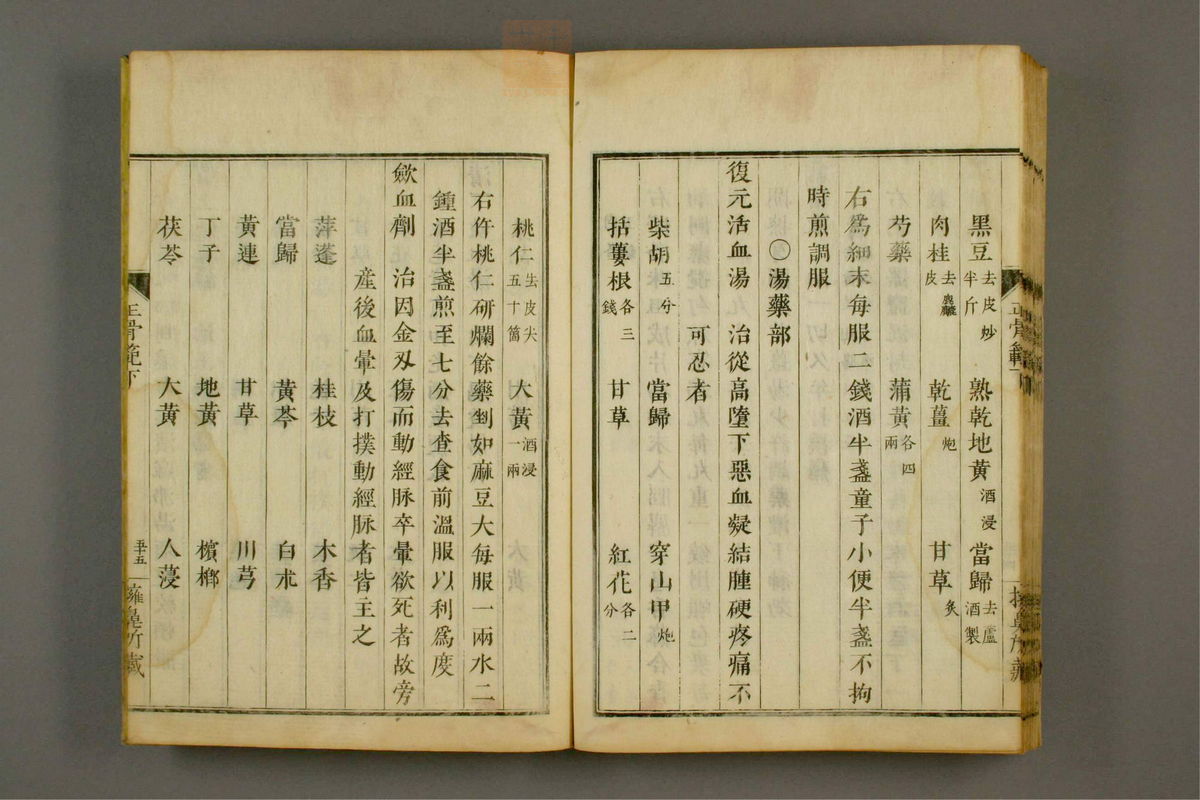 黑豆去皮炒半斤 熟乾地黃酒浸 當歸去蘆酒製
肉桂去麁皮 乾薑炮 甘草炙
芍藥 蒲黃各四兩
右爲細末每服二錢酒半盞童子小便半盞不拘
時煎調服
〇湯藥部
復元活血湯 治從高墮下惡血凝結腫硬疼痛不
可忍者
柴胡五分 當歸 穿山甲炮
括蔞根各三錢 甘草 紅花各二分
桃仁去皮尖五十箇 大黃酒浸一兩
右件桃仁研爛餘藥剉如麻豆大每服一兩水二
鍾酒半盞煎至七分去查食前溫服以利爲度
歛血劑 治因金刄傷而動經脉卒暈欲死者故旁
產後血暈及打撲動經脉者皆主之
萍蓬 桂枝 木香
當歸 黃芩 白朮
黃連 甘草 川芎
丁子 地黃 檳榔
茯苓 大黃 人蓡
正骨範下 五十五